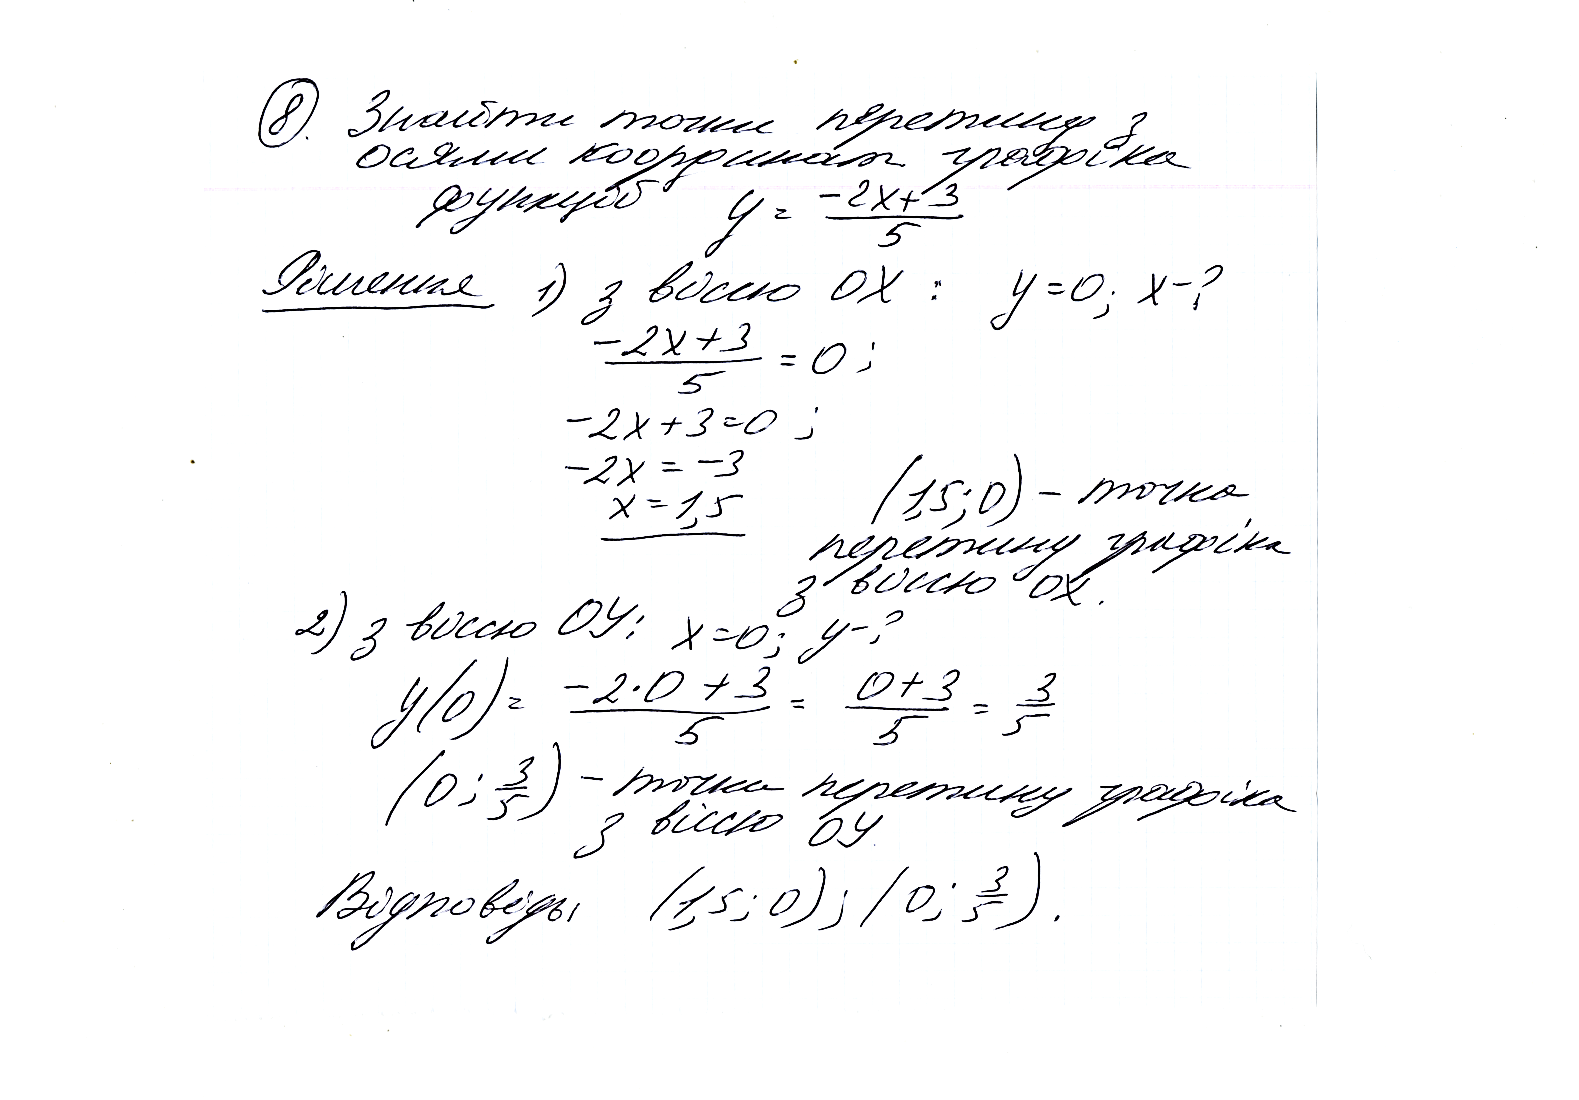 8. Знайти точки перетину з
осями координат графіка
функції y = (-2x+3)/5
Рішення 1) з віссю OX : y=0; x-?
(-2x+3)/5 = 0 ;
-2x+3=0 ;
-2x = -3
x=1,5 (1,5;0) - точка
перетину графіка
з віссю OX.
2) з віссю OY: x=0; y-?
y(0) = (-2·0+3)/5 = (0+3)/5 = 3/5
(0; 3/5) - точка перетину графіка
з віссю OY
Відповідь (1,5;0); (0; 3/5).